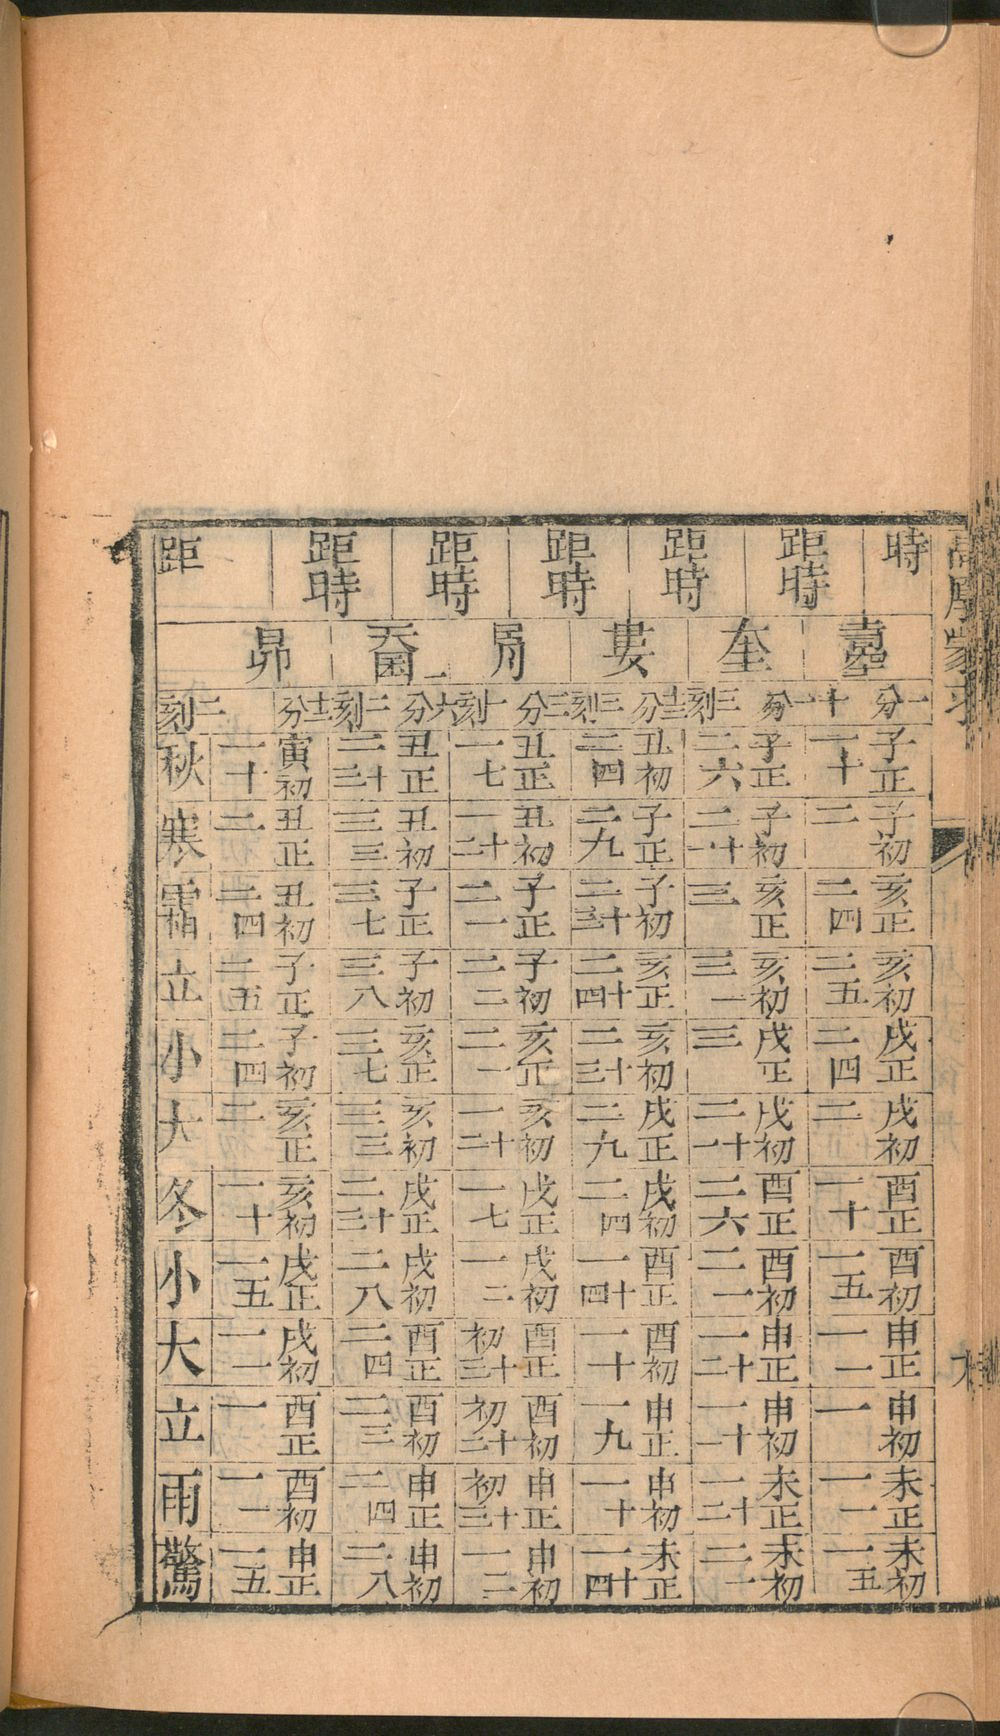 高厚蒙求
時
一分子正子初亥正亥初戌正戌初酉正酉初申正申初未正未初
十一二四二五二四二一十一五一一一一一一五
距時
奎
十一分子正子初亥正亥初戌正戌初酉正酉初申正申初未正未初
三刻二六二十一三三一三二十一二六二一一十二一十一一十二二一
距時
婁
十二分丑初子正子初亥正亥初戌正戌初酉正酉初申正申初未正
三刻二四二九二十三二十四二十三二九二四一十四一十一九一十一十四
距時
胃
三分丑正丑初子正子初亥正亥初戌正戌初酉正酉初申正申初
一刻一七一十二二一二二二一一十二一七一二初十三初十二初十三一二
距時
天囷一
六分丑正丑初子正子初亥正亥初戌正戌初酉正酉初申正申初
二刻二十三三三三七三八三七三三二十三二八二四二三二四二八
距時
昴
十二分寅初丑正丑初子正子初亥正亥初戌正戌初酉正酉初申正
一十二二四二五二四二一十一五一一一一一一五
距
二刻秋寒霜立小大冬小大立雨驚